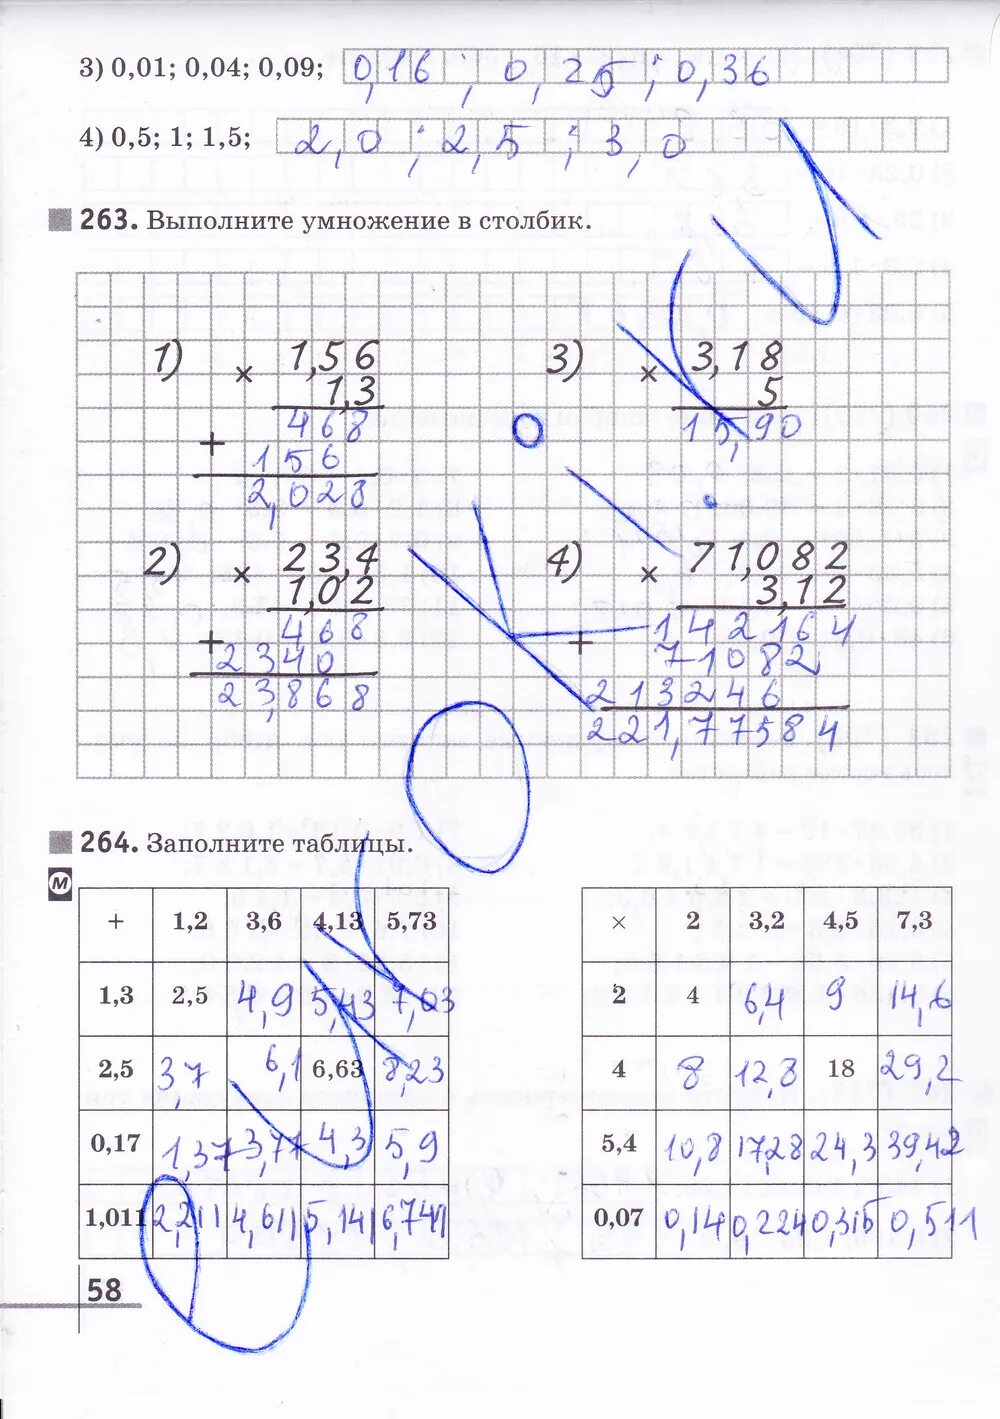 3) 0,01; 0,04; 0,09; 0,16 ; 0,25 ; 0,36
4) 0,5; 1; 1,5; 2,0 ; 2,5 ; 3,0
263. Выполните умножение в столбик.
1) × 1,56
1,3
+ 468
156
2,028
3) × 3,18
5
15,90
2) × 23,4
1,02
+ 468
2340
23,868
4) × 71,082
3,12
+ 1,42164
71082
213246
221,77584
264. Заполните таблицы.
М
+ 1,2 3,6 4,13 5,73
1,3 2,5 4,9 5,43 7,03
2,5 3,7 6,1 6,63 8,23
0,17 1,37 3,77 4,3 5,9
1,011 2,211 4,611 5,141 6,741
× 2 3,2 4,5 7,3
2 4 6,4 9 14,6
4 8 12,8 18 29,2
5,4 10,8 17,28 24,3 39,42
0,07 0,14 0,224 0,315 0,511
58